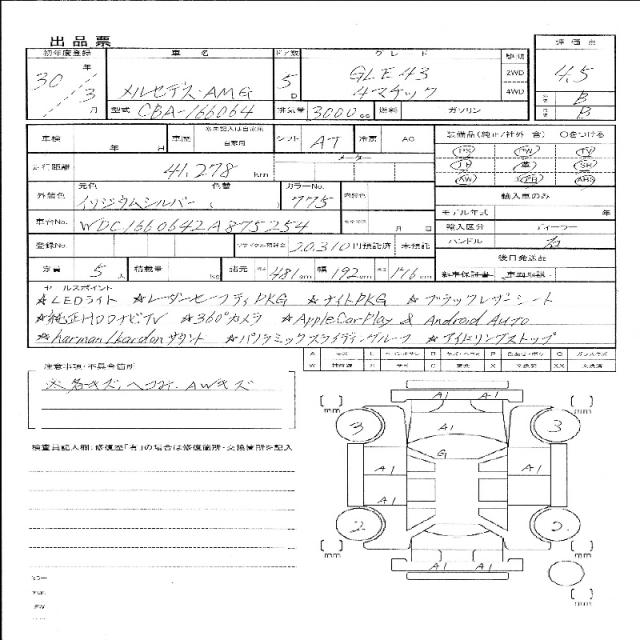 出品票
初年度登録 車名 ドア数 グレード 駆動 評価点
30年 3月 メルセデス・AMG 5D GLE43 4マチック 2WD 4WD 4.5
型式 CBA-166064 排気量 3000cc 燃料 ガソリン B
B
車検 年 月 車歴 ※未記入は自家用 自家用 シフト AT 冷房 AC 装備品(純正/社外 含) 〇をつける
走行距離 メーター
41,278 km
AW ABS
外装色 元色 色替 カラーNo. 内装色
イリジウムシルバー ( ) 775
輸入車のみ
モデル年式 年
車台No. WDC1660642A875254 月 日
輸入区分 ディーラー
登録No. リサイクル預託金 20,310 円預託済 未預託
ハンドル 右
定員 5人 積載量 kg 諸元 長さ 481cm 幅 192cm 176cm
後日発送品
新車保証書 車両取説
セールスポイント
★LEDライト ★レーダーセーフティPKG ★ナイトPKG ★ブラックレザーシート
★純正HDDナビTV ★360°カメラ ★Apple CarPlay & Android Auto
★harman/kardonサウンド ★パノラミックスライディングルーフ ★アイドリングストップ
注意事項・不具合箇所
※各キズ,ヘコミ,AWキズ
検査員記入欄:修復歴「有」の場合は修復箇所・交換箇所を記入
mm mm
A1 A1
3 A1 3
G
A1 A1
A1
2 2
mm mm
A1 A1
mm